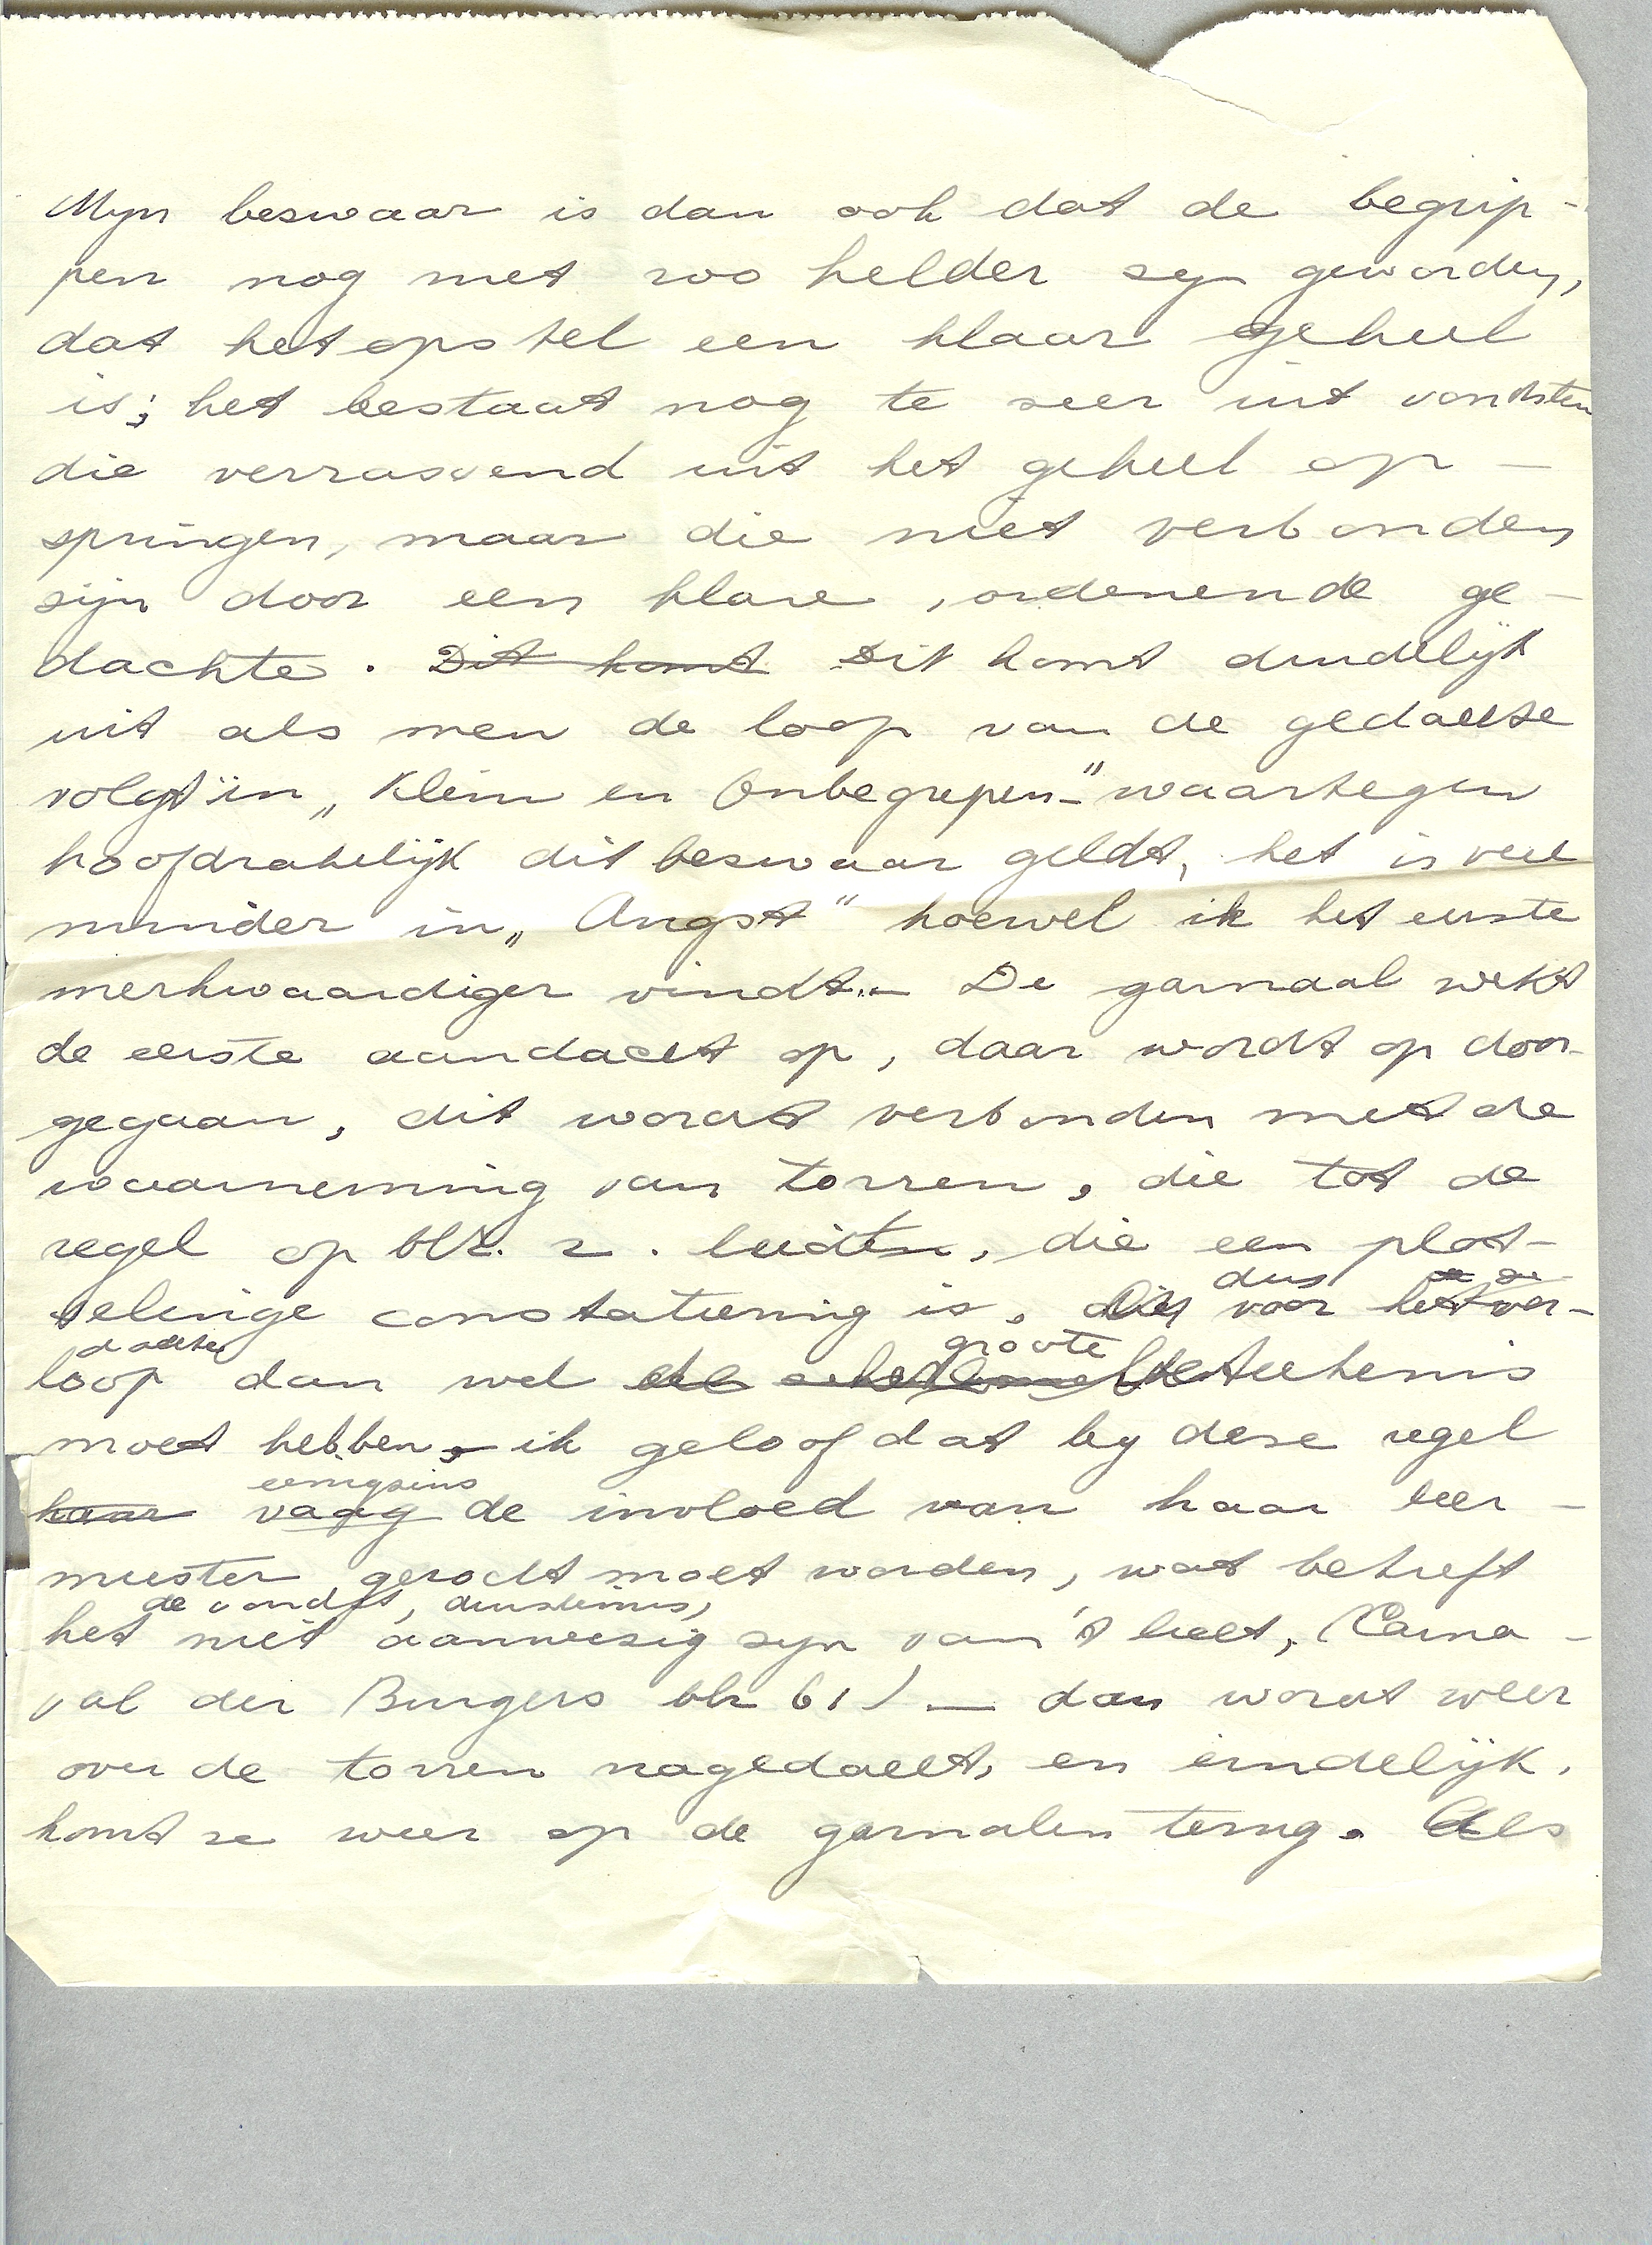 Mijn bezwaar is dan ook dat de begrip-
pen nog niet zoo helder zijn geworden,
dat het opstel een klaar geheel
is; het bestaat nog te zeer uit vondsten
die verrassend uit het geheel op-
springen, maar die niet verbonden
zijn door een klare, ordenende ge-
dachte. Dit komt Dit komt duidelijk
uit als men de loop van de gedachte
volgt in „Klein en Onbegrepen" waartegen
hoofdzakelijk dit bezwaar geldt, het is veel
minder in „Angst" hoewel ik het eerste
merkwaardiger vindt. — De garnaal wekt
de eerste aandacht op, daar wordt op door-
gegaan, dit wordt verbonden met de
waarneming van torren, die tot de
regel op blz. 2. leidten, die een plot-
selinge constateering is, die dus voor het ver-
loop dan wel groote beteekenis
moet hebben, ik geloof dat bij deze regel
haar eenigszins vaag de invloed van haar leer-
meester gezocht moet worden, wat betreft
de vondst, duisternis,
het niet aanwezig zijn van 't licht, (Carna-
val der Burgers blz 61) — dan wordt weer
over de torren nagedacht, en eindelijk.
komt ze weer op de garnalen terug. Als